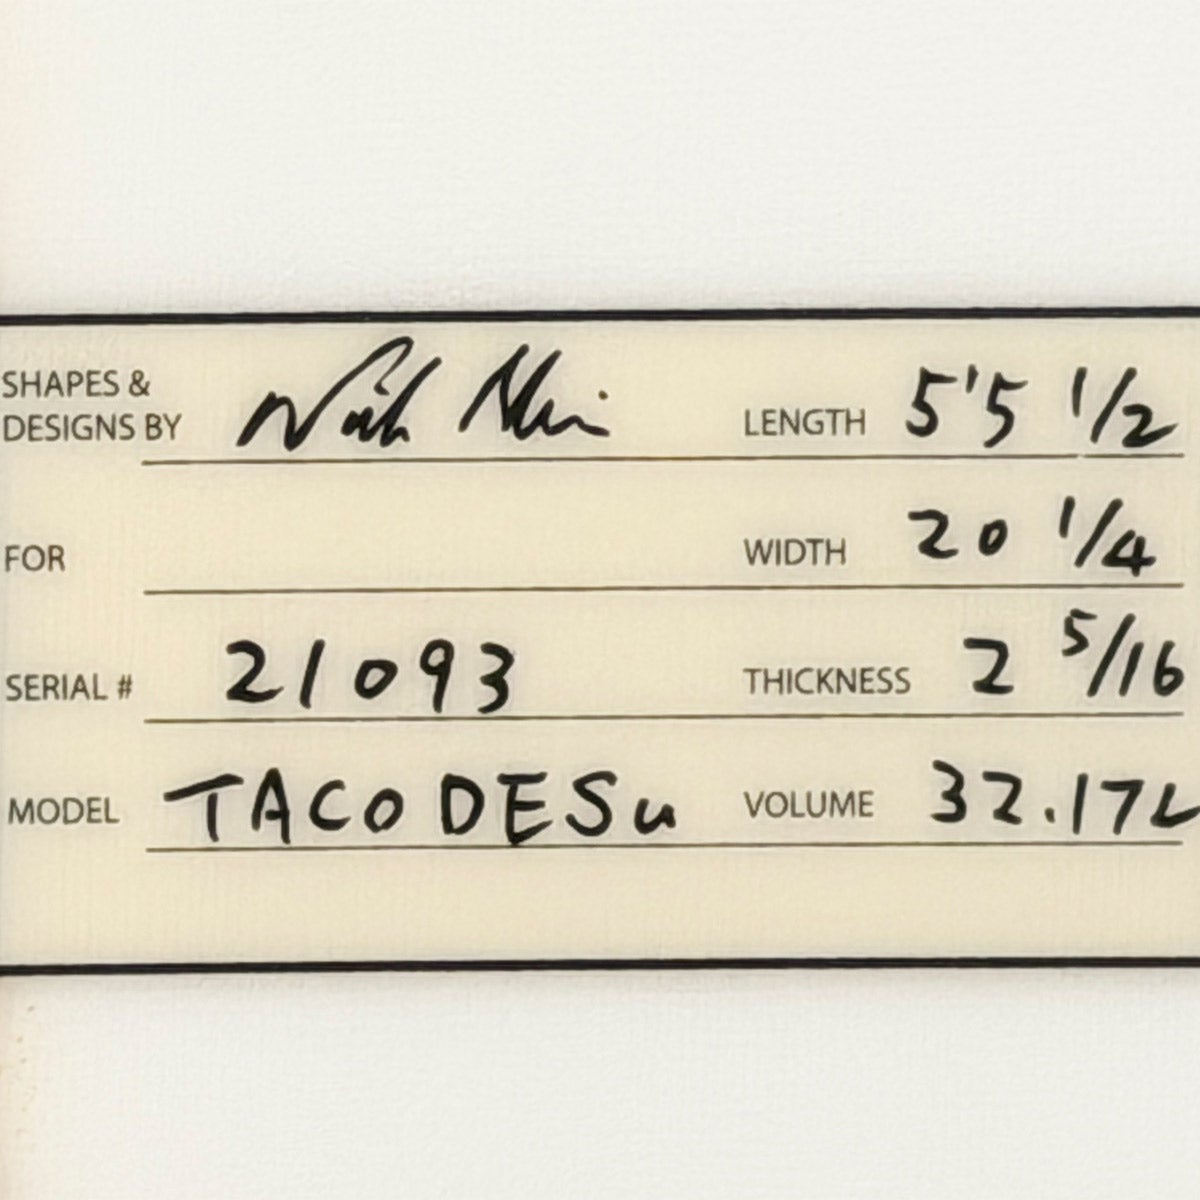 SHAPES &
DESIGNS BY
LENGTH 5'5 1/2
FOR
WIDTH 20 1/4
SERIAL # 21093
THICKNESS 2 5/16
MODEL TACO DESu
VOLUME 32.17L